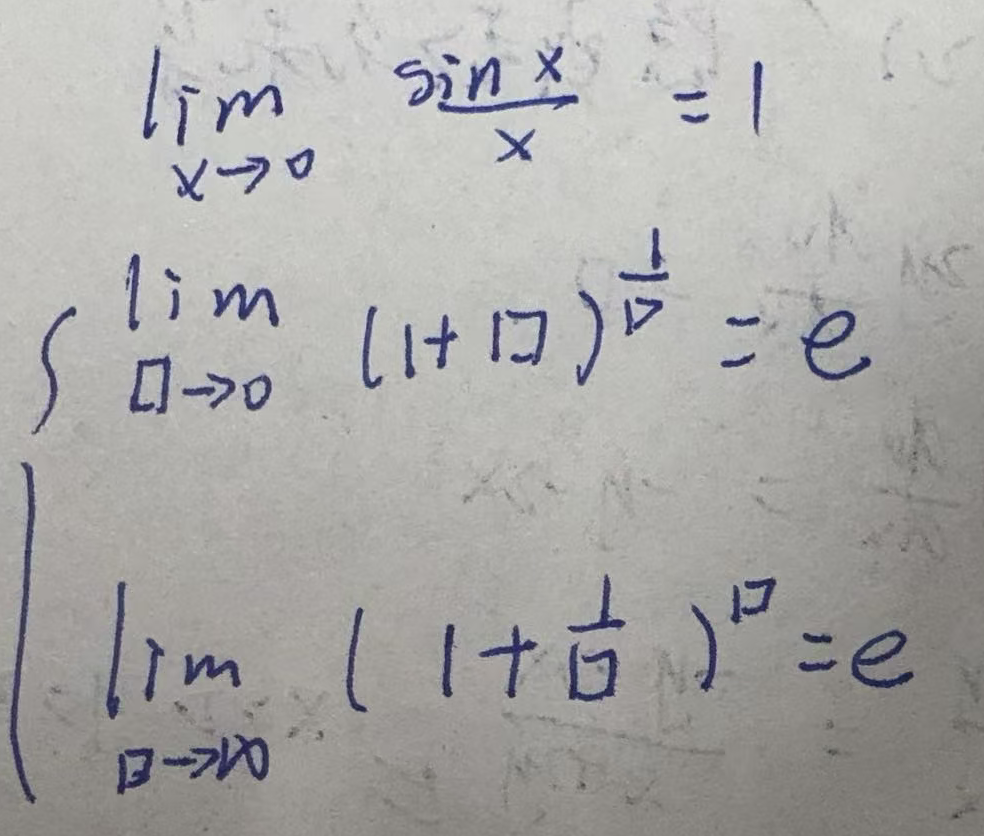 lim x→0 sin x / x = 1
lim □→0 (1+□)^(1/□) = e
lim □→∞ (1+1/□)^□ = e